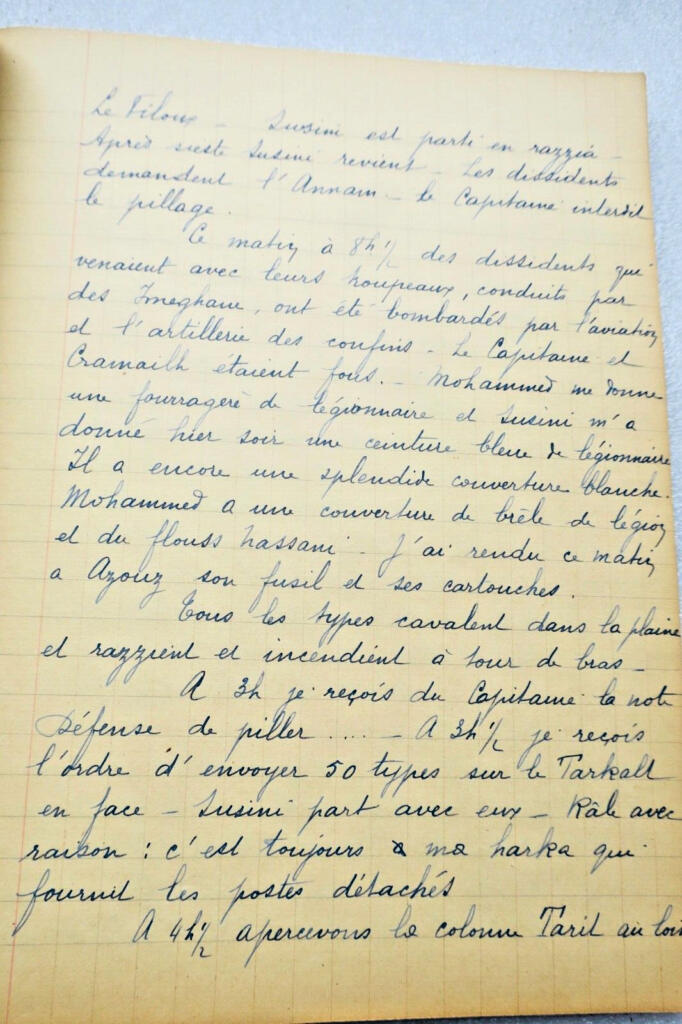 Le Filoux - Susini est parti en razzia -
Après sieste Susini revient - Les dissidents
demandent l'Annam - le Capitaine interdit
le pillage.
Ce matin à 8h 1/2 des dissidents qui
venaient avec leurs troupeaux, conduits par
des Imeghane, ont été bombardés par l'aviation
et l'artillerie des confins - Le Capitaine et
Cramailh étaient fous. - Mohammed me donne
une fourragère de légionnaire et Susini m'a
donné hier soir une ceinture bleue de légionnaire
Il a encore une splendide couverture blanche.
Mohammed a une couverture de brêle de légion
et du flouss hassani - J'ai rendu ce matin
a Azouz son fusil et ses cartouches.
Tous les types cavalent dans la plaine
et razzient et incendient à tour de bras -
A 3h je reçois du Capitaine la note
Défense de piller .... - A 3h 1/2 je reçois
l'ordre d'envoyer 50 types sur le Tarkalt
en face - Susini part avec eux - Râle avec
raison : c'est toujours ma harka qui
fournit les postes détachés
A 4h 1/2 apercevons la colonne Tarit au loin